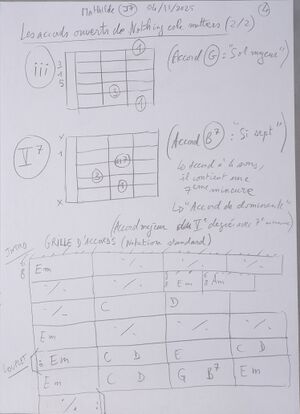 Mathilde (J7) 04/11/2025
Les accords ouverts de Nothing else matters (2/2)
iii
3
1
5
(Accord G : "Sol majeur"
V7
x
1
x
(Accord B7 : "Si sept"
↳ accord à 4 sons,
il contient une
7ème mineure
↳ "Accord de dominante"
(Accord majeur du Ve degré avec 7e mineure)
INTRO GRILLE D'ACCORDS (Notation standard)
6/8 Em ٪ ٪ ٪
٪ ٪ Em Am
٪ C D ٪
Em ٪ ٪ ٪
COUPLET 6/8 Em C D E C D
Em C D G B7 Em
٪